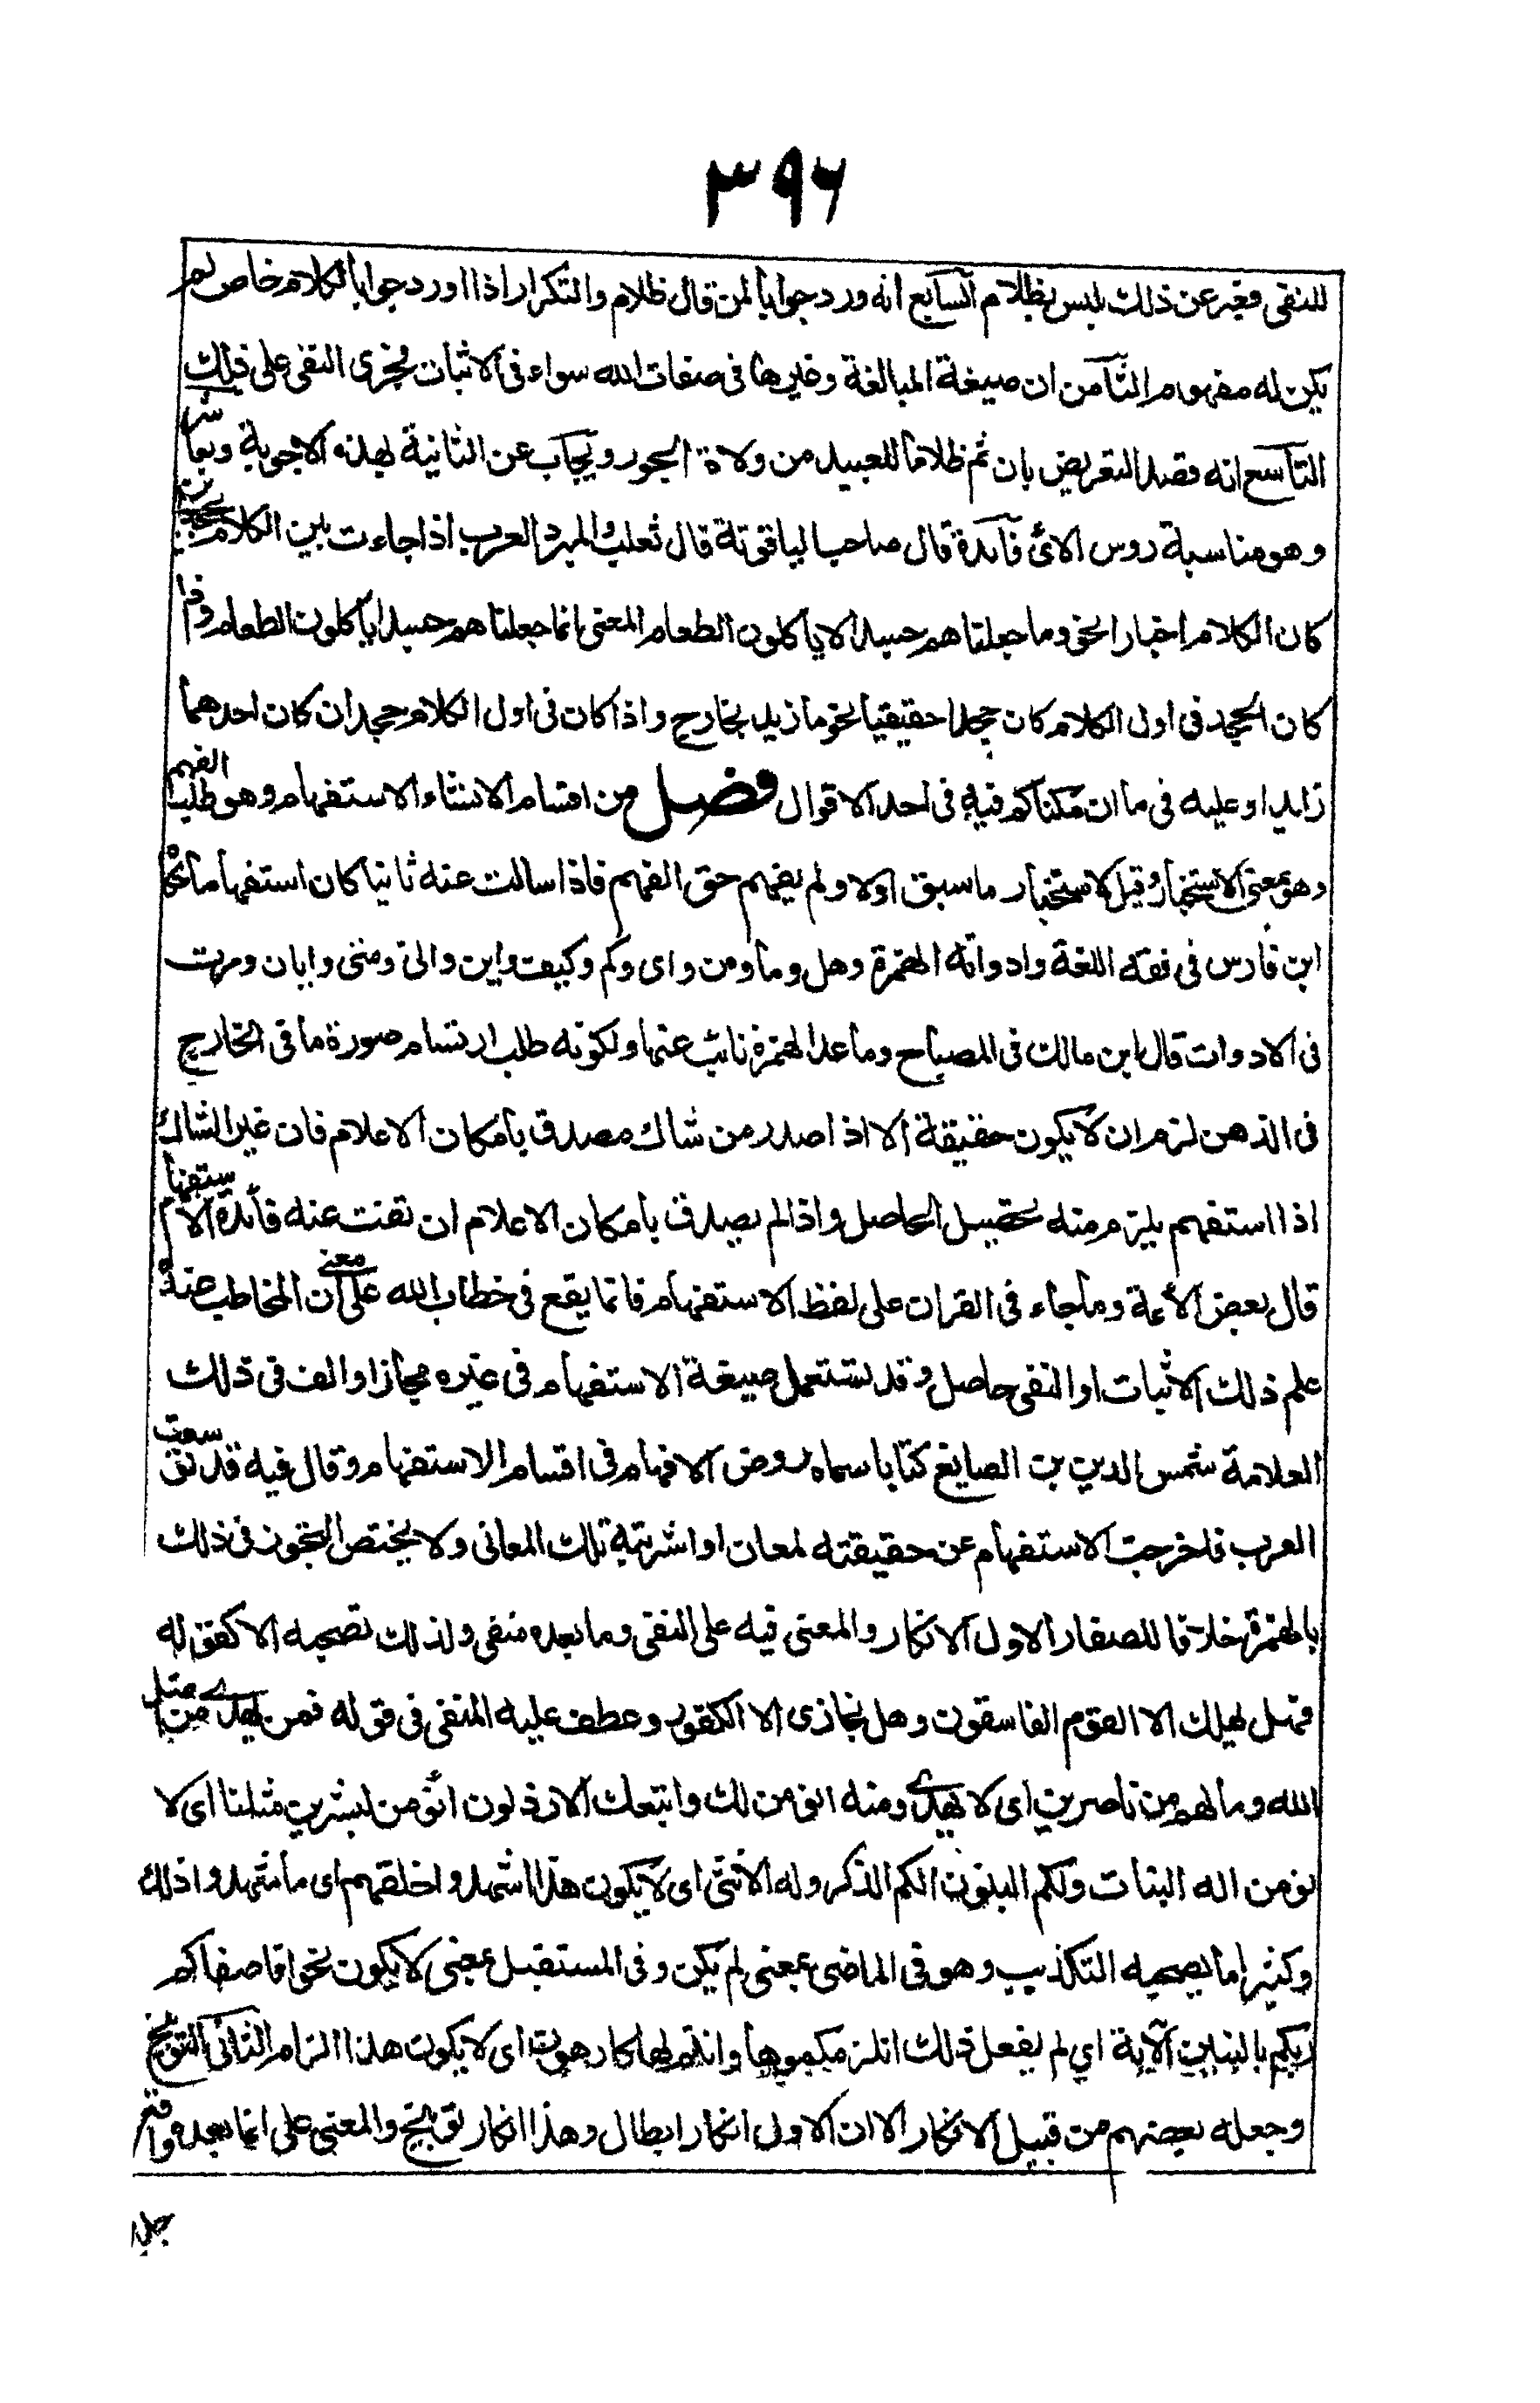 ٣٩٦
للنفى فعبر عن ذلك بليس بظلام السابع انه ورد جوابا لمن قال ظلام والتكرار اذا اورد جوابا لكلام خاص لم
يكن له مفهوم الثامن ان صيغة المبالغة وغيرها فى صفات الله سواء فى الاثبات فجرى النفى على ذلك
التاسع انه قصد التعريض بان ثم ظلاما للعبيد من ولاة الجور ويجاب عن الثانية بهذه الاجوبة وبعاشر
وهو مناسبة روس الاى فآئدة قال صاحب الياقوتة قال ثعلب والمبرد العرب اذا جاءت بين الكلام بجحدين
كان الكلام اخبارا نحو وما جعلناهم جسدا لا ياكلون الطعام المعنى انما جعلناهم جسدا ياكلون الطعام واذا
كان الجحد فى اول الكلام كان جحدا حقيقيا نحو ما زيد بخارج واذا كان فى اول الكلام جحدان كان احدهما
زايدا وعليه فى ما ان مكناكم فيه فى احد الاقوال فصل من اقسام الانشاء الاستفهام وهو طلب الفهم
وهو بمعنى الاستخبار وقيل الاستخبار ما سبق اولا ولم يفهم حق الفهم فاذا سالت عنه ثانيا كان استفهاما حكاه
ابن فارس فى فقه اللغة وادواته الهمزة وهل وما ومن واى وكم وكيف واين وانى ومتى وايان ومرت
فى الادوات قال ابن مالك فى المصباح وما عدا الهمزة نائب عنها ولكونه طلب ارتسام صورة ما فى الخارج
فى الذهن لزم ان لا يكون حقيقة الا اذا صدر من شاك مصدق بامكان الاعلام فان غير الشاك
اذا استفهم يلزم منه تحصيل الحاصل واذا لم يصدق بامكان الاعلام انتفت عنه فائدة الاستفهام
قال بعض الائمة وما جاء فى القران على لفظ الاستفهام فانما يقع فى خطاب الله على معنى ان المخاطب عنده
علم ذلك الاثبات او النفى حاصل وقد تستعمل صيغة الاستفهام فى غيره مجازا والف فى ذلك
العلامة شمس الدين بن الصايغ كتابا سماه روض الافهام فى اقسام الاستفهام وقال فيه قد توسعت
العرب فاخرجت الاستفهام عن حقيقته لمعان او اشربته تلك المعانى ولا يختص التجوز فى ذلك
بالهمزة خلافا للصفار الاول الانكار والمعنى فيه على النفى وما بعده منفى ولذلك تصحبه الا كقوله
فهل يهلك الا القوم الفاسقون وهل نجازى الا الكفور وعطف عليه المنفى فى قوله فمن يهدى من اضل
الله وما لهم من ناصرين اى لا يهدى ومنه انومن لك واتبعك الارذلون انؤمن لبشرين مثلنا اى لا
نومن اله البنات ولكم البنون الكم الذكر وله الانثى اى لا يكون هذا اشهدوا خلقهم اى ما شهدوا ذلك
وكثيرا ما يصحبه التكذيب وهو فى الماضى بمعنى لم يكن وفى المستقبل بمعنى لا يكون نحو افاصفاكم
ربكم بالبنين الآية اي لم يفعل ذلك انلزمكموها وانتم لها كارهون اى لا يكون هذا الزام الثانى التوبيخ
وجعله بعضهم من قبيل الانكار الا ان الاول انكار ابطال وهذا انكار توبيخ والمعنى على ان ما بعده واقع